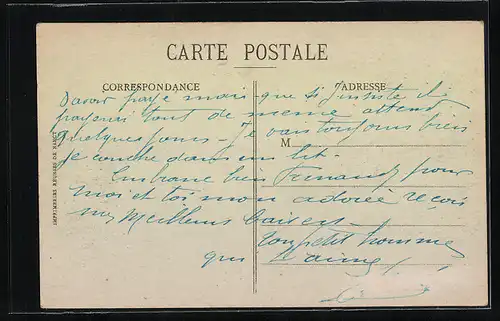 CARTE POSTALE
CORRESPONDANCE
ADRESSE
d'avoir payé mais que si j'insiste il
payerai tout de meme attend
quelques jours - je vais toujours bien
M
je couche dans un lit -
Embrasse bien Fernand pour
moi et toi mon adorée reçois
mes Meilleurs baisers -
ton petit homme
qui t'aime
IMPRIMERIES REUNIES DE NANCY